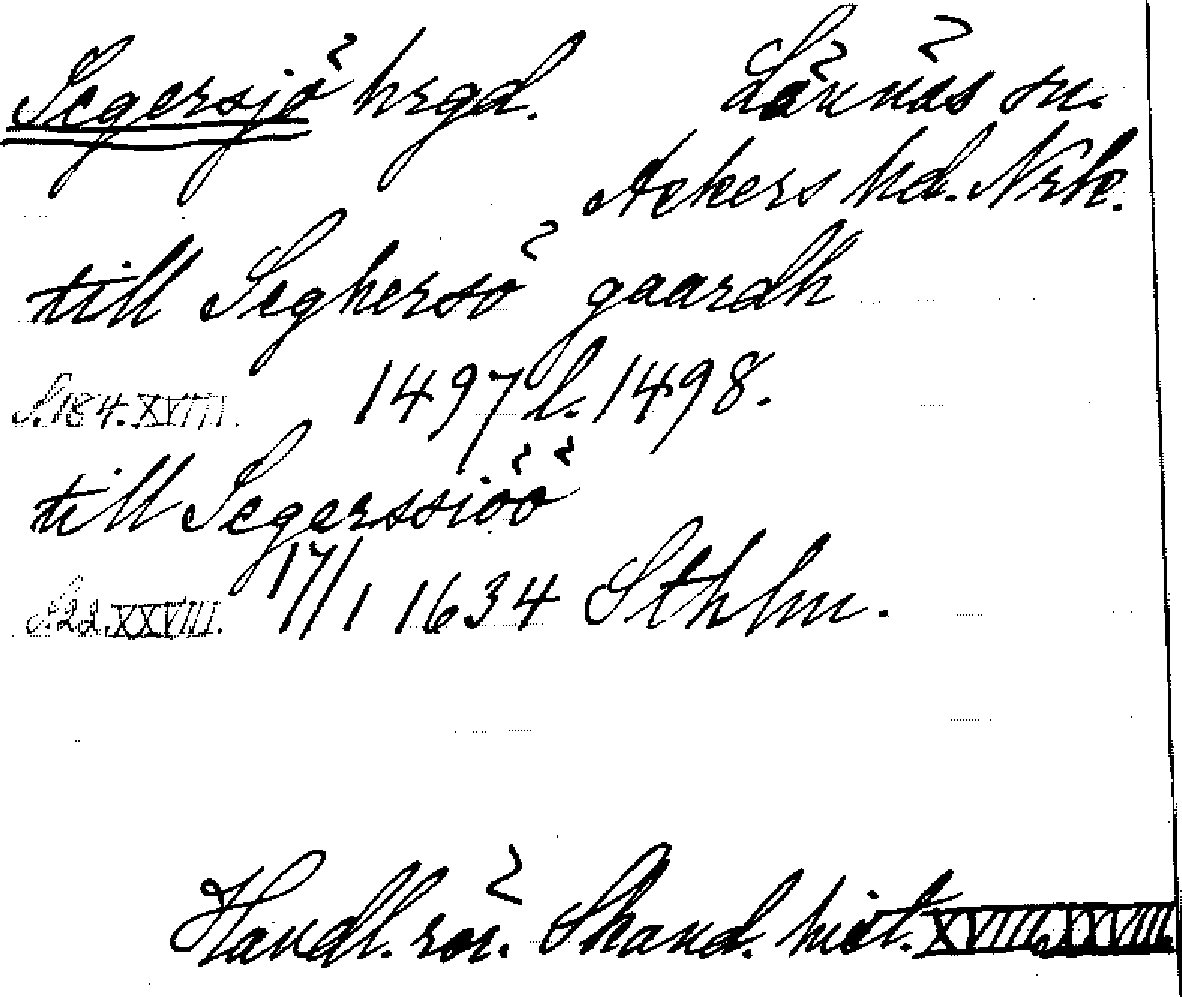 Segersjö hrgd. Lännäs sn.
Askers hd. Nrk.
till Seghersö gaardh
S. 184. XVIII. 1497 l. 1498.
till Segerssiöö
S. 22. XXVIII. 17/1 1634 Sthlm.
Handl. rör. Skand. hist. XVIII, XXVIII.